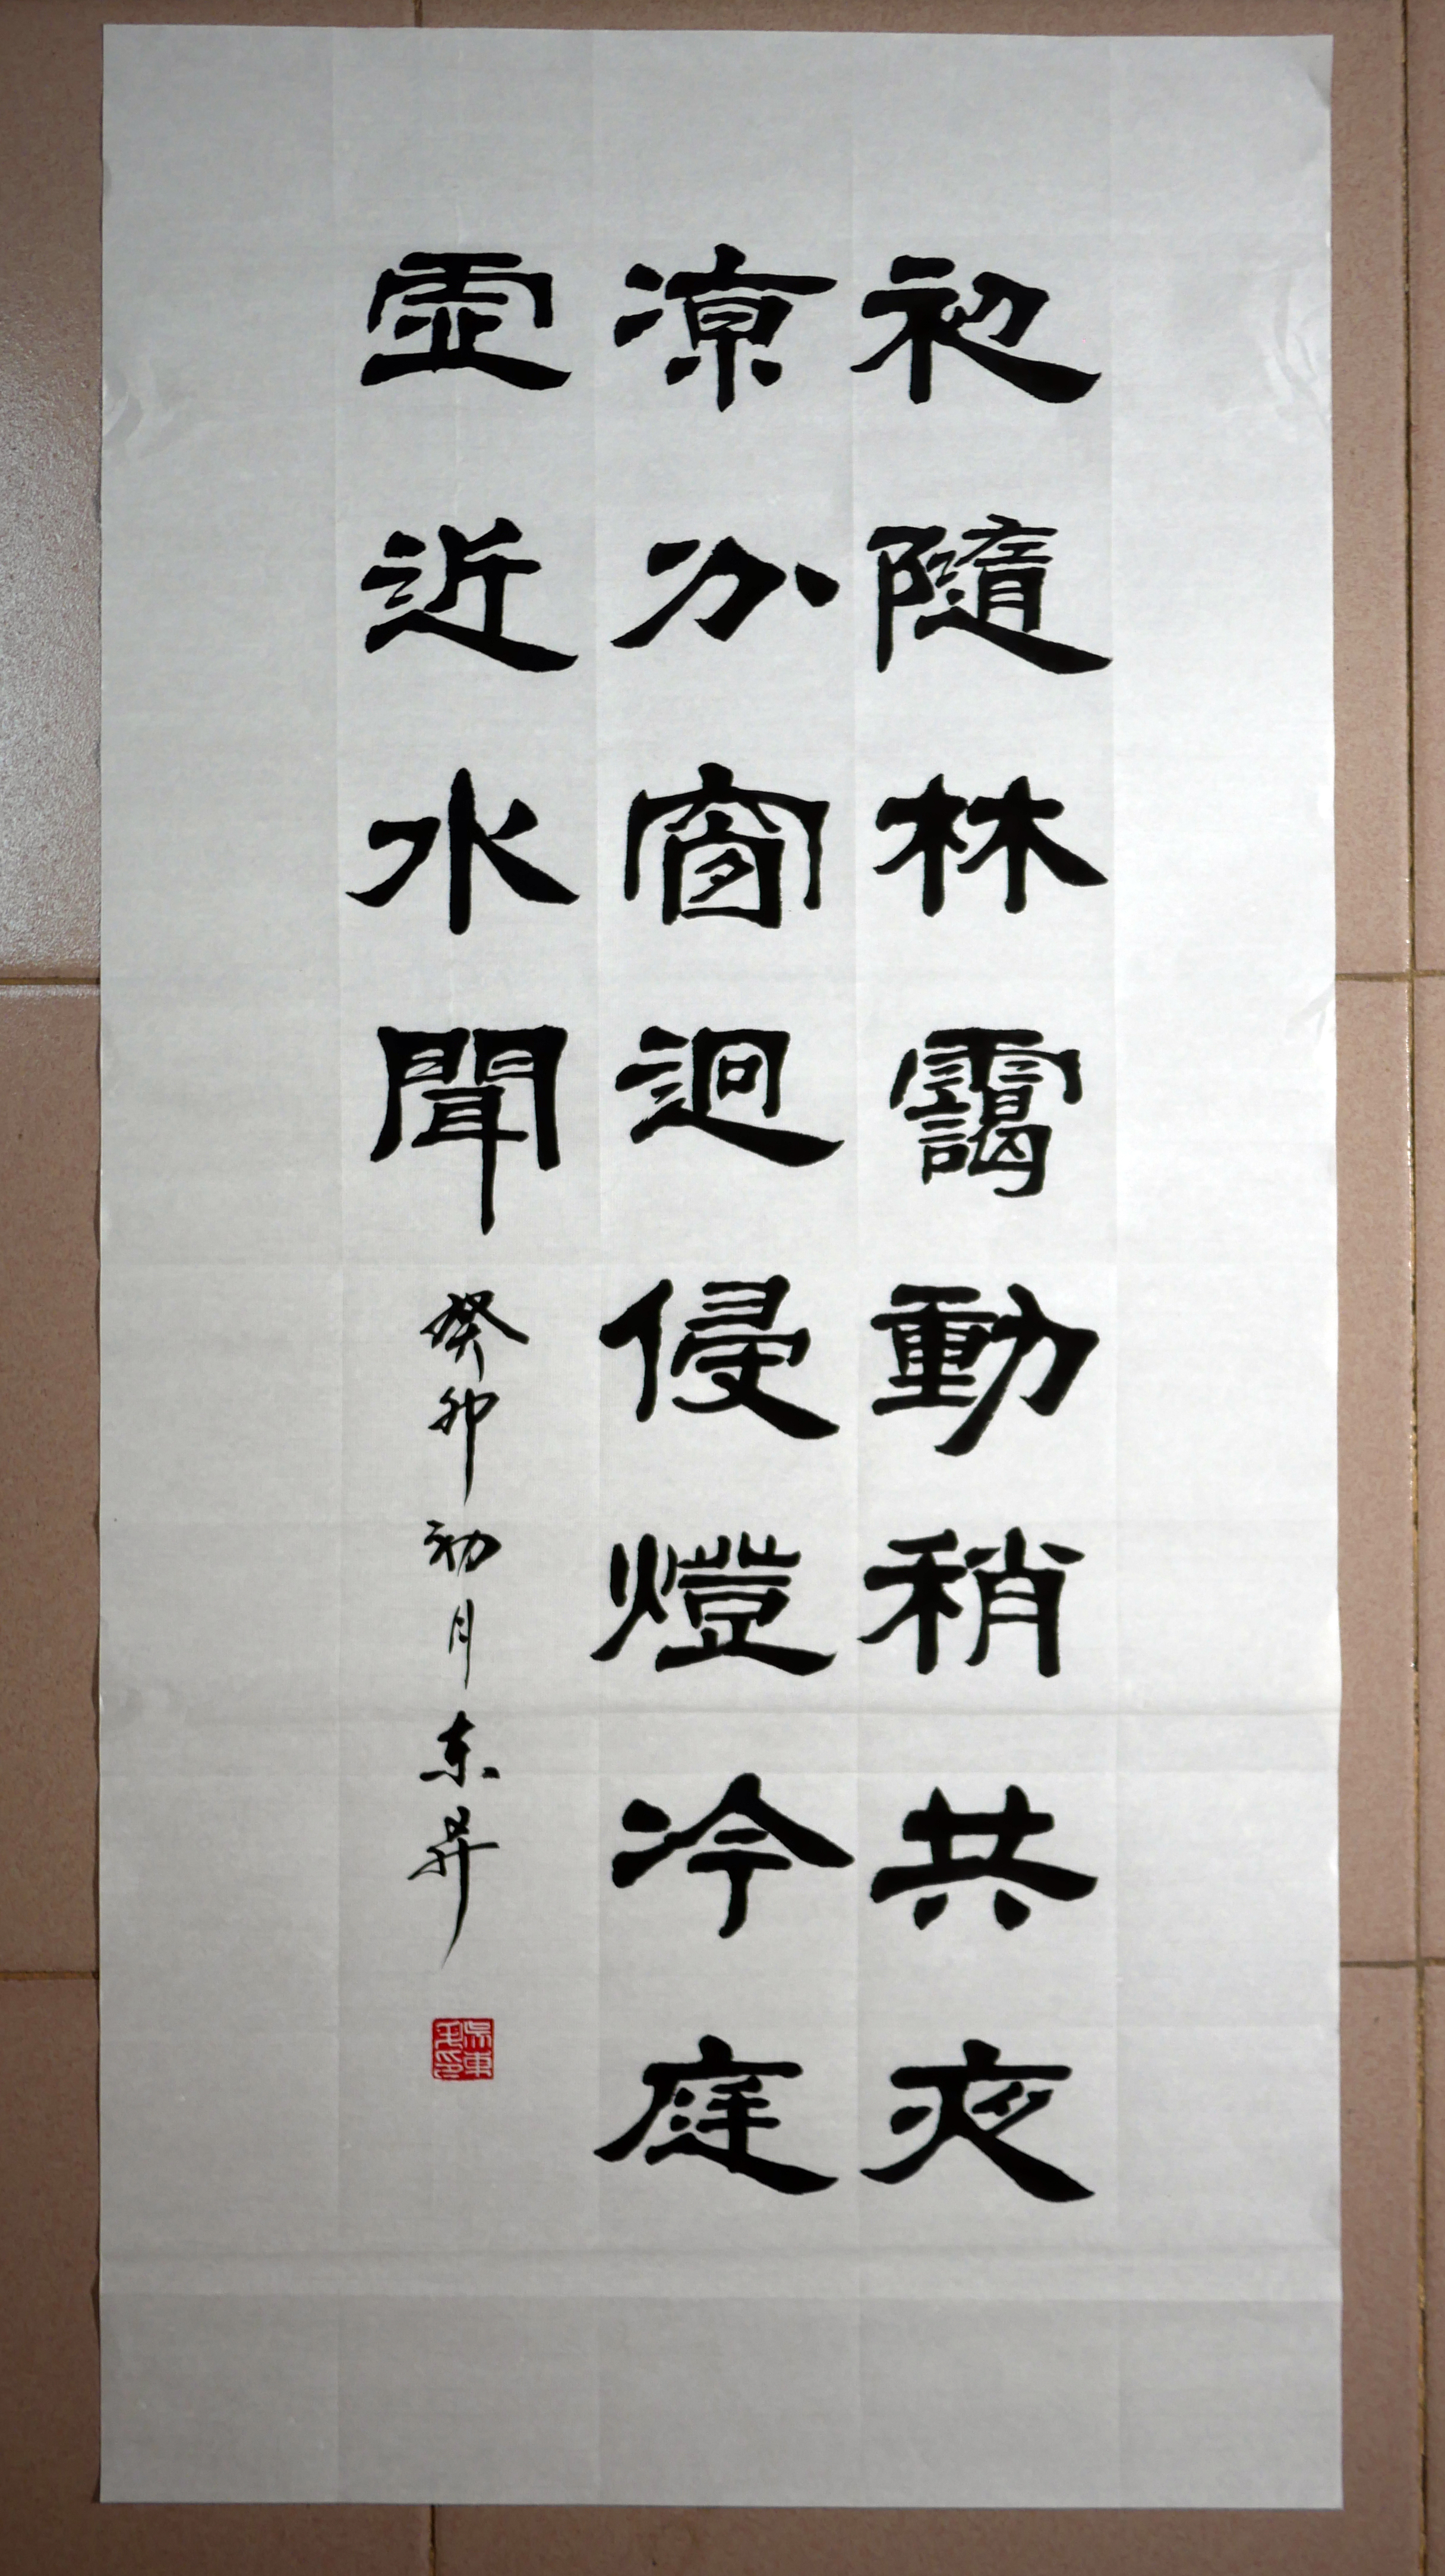 初隨林靄動稍共夜
涼分窗迥侵燈冷庭
虛近水聞
癸卯初月东昇